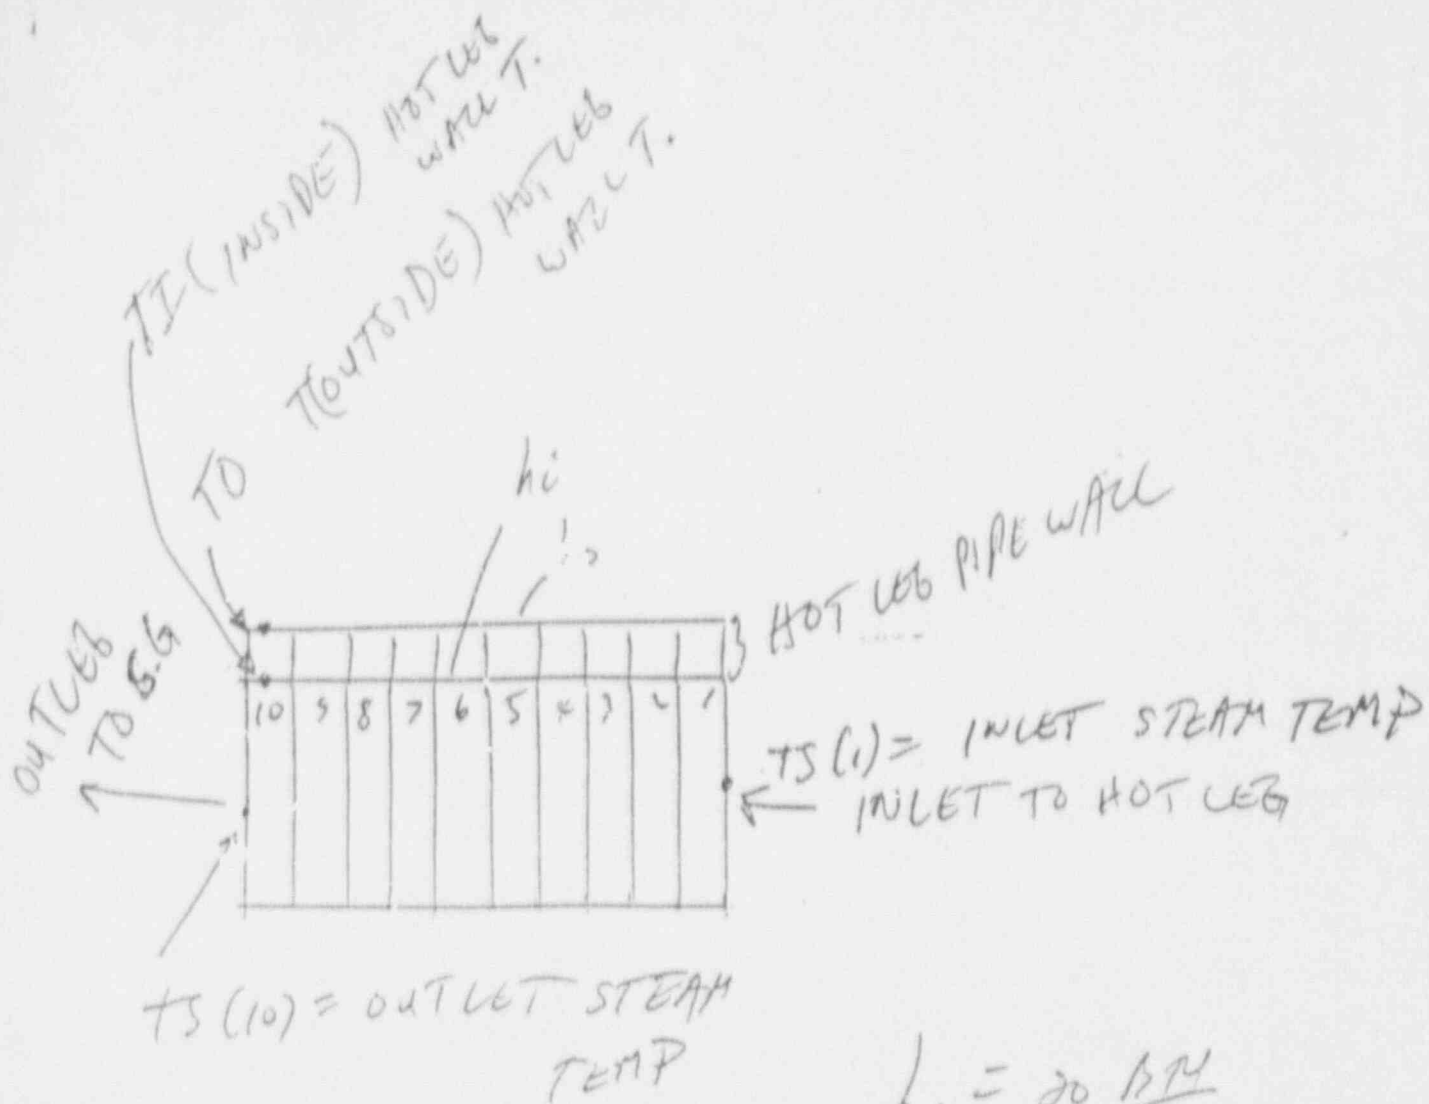 TI (INSIDE) HOT LEG
WALL T.
TO T(OUTSIDE) HOT LEG
WALL T.
hi
HOT LEG PIPE WALL
OUTLEG
TO S.G
10 9 8 7 6 5 4 3 2 1
TS (1) = INLET STEAM TEMP
INLET TO HOT LEG
TS (10) = OUTLET STEAM
TEMP
= 20 BTU